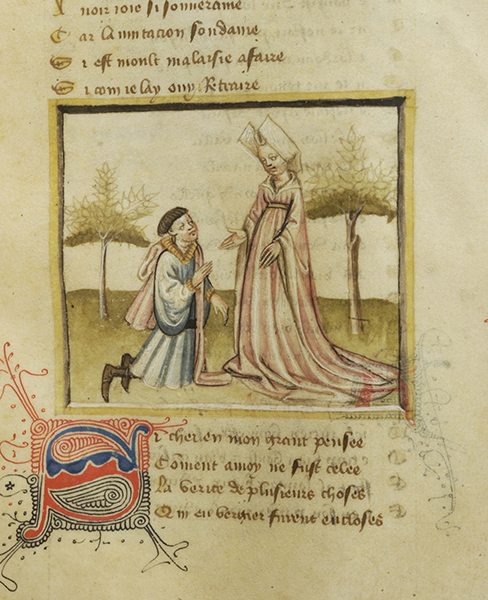 noir ioie si souueraine
Car la mutacion soudaine
Si est moult malaisie a faire
Si com ie lay ouy Retraire
Si chei en mon grant pensee
Coment amoy ne fust celee
La verite de plusieurs choses
Qui en vergier furent encloses